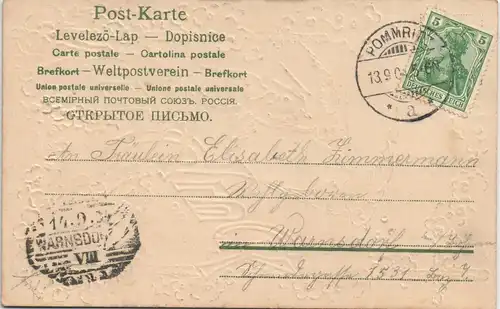 Post-Karte
Levelezö-Lap — Dopisnice
Carte postale — Cartolina postale
Brefkort — Weltpostverein — Brefkort
Union postale universelle — Unione postale universale
ВСЕМІРНЫЙ ПОЧТОВЫЙ СОЮЗЪ. РОССІЯ.
ОТКРЫТОЕ ПИСЬМО.
POMMRITZ
13.9.0
* a
5 5
DEUTSCHES REICH
An Fräulein Elisabeth Zimmermann
in Warnsdorf
1531
14.9.
WARNSDO
VIII